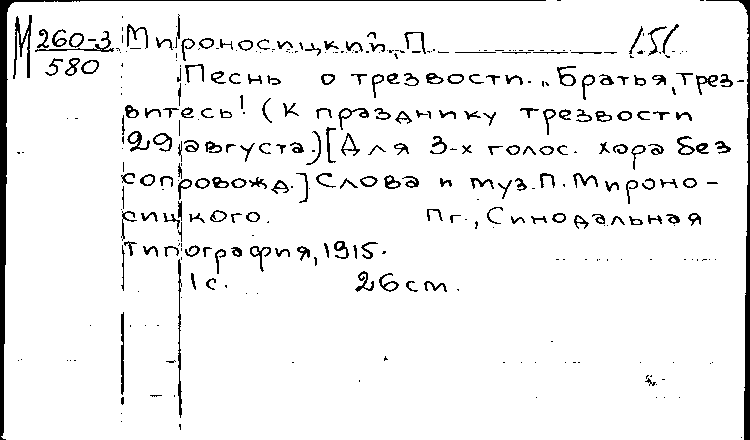 М 260-3 Мироносицкий, П.
580
Песнь о трезвости. „Братья, трез-
витесь! (К празднику трезвости
29 августа.) [Для 3-х голос. хора без
сопровожд.] Слова и муз. П. Мироно-
сицкого. Пг., Синодальная
типография, 1915.
1 с. 26 см.